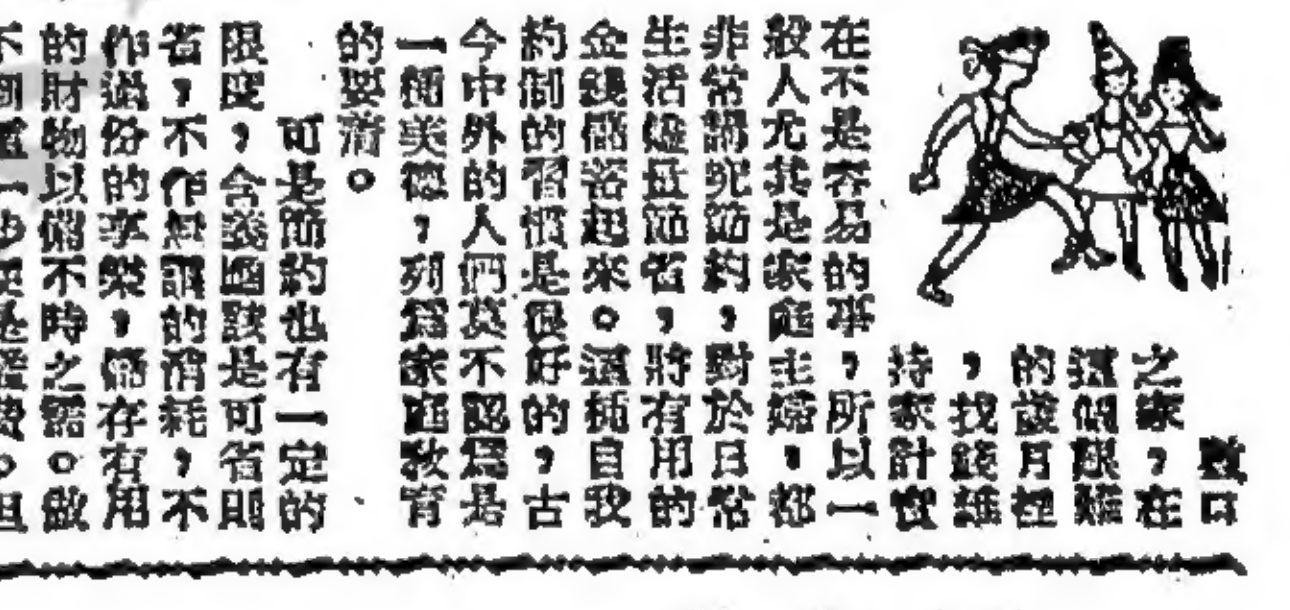 數口
之家,在
這個艱難
的歲月裡
,找錢維
持家計實
在不是容易的事,所以一
般人尤其是家庭主婦,都
非常講究節約,對於日常
生活儘量節省,將有用的
金錢儲蓄起來。這種自我
約制的習慣是很好的,古
今中外的人們莫不認爲是
一種美德,列爲家庭教育
的要	
可是節約也有一定的
限度,含義應該是可省則
省,不作無謂的消耗,不
作過份的享樂,儲存有用
的財物以備不時之需。做